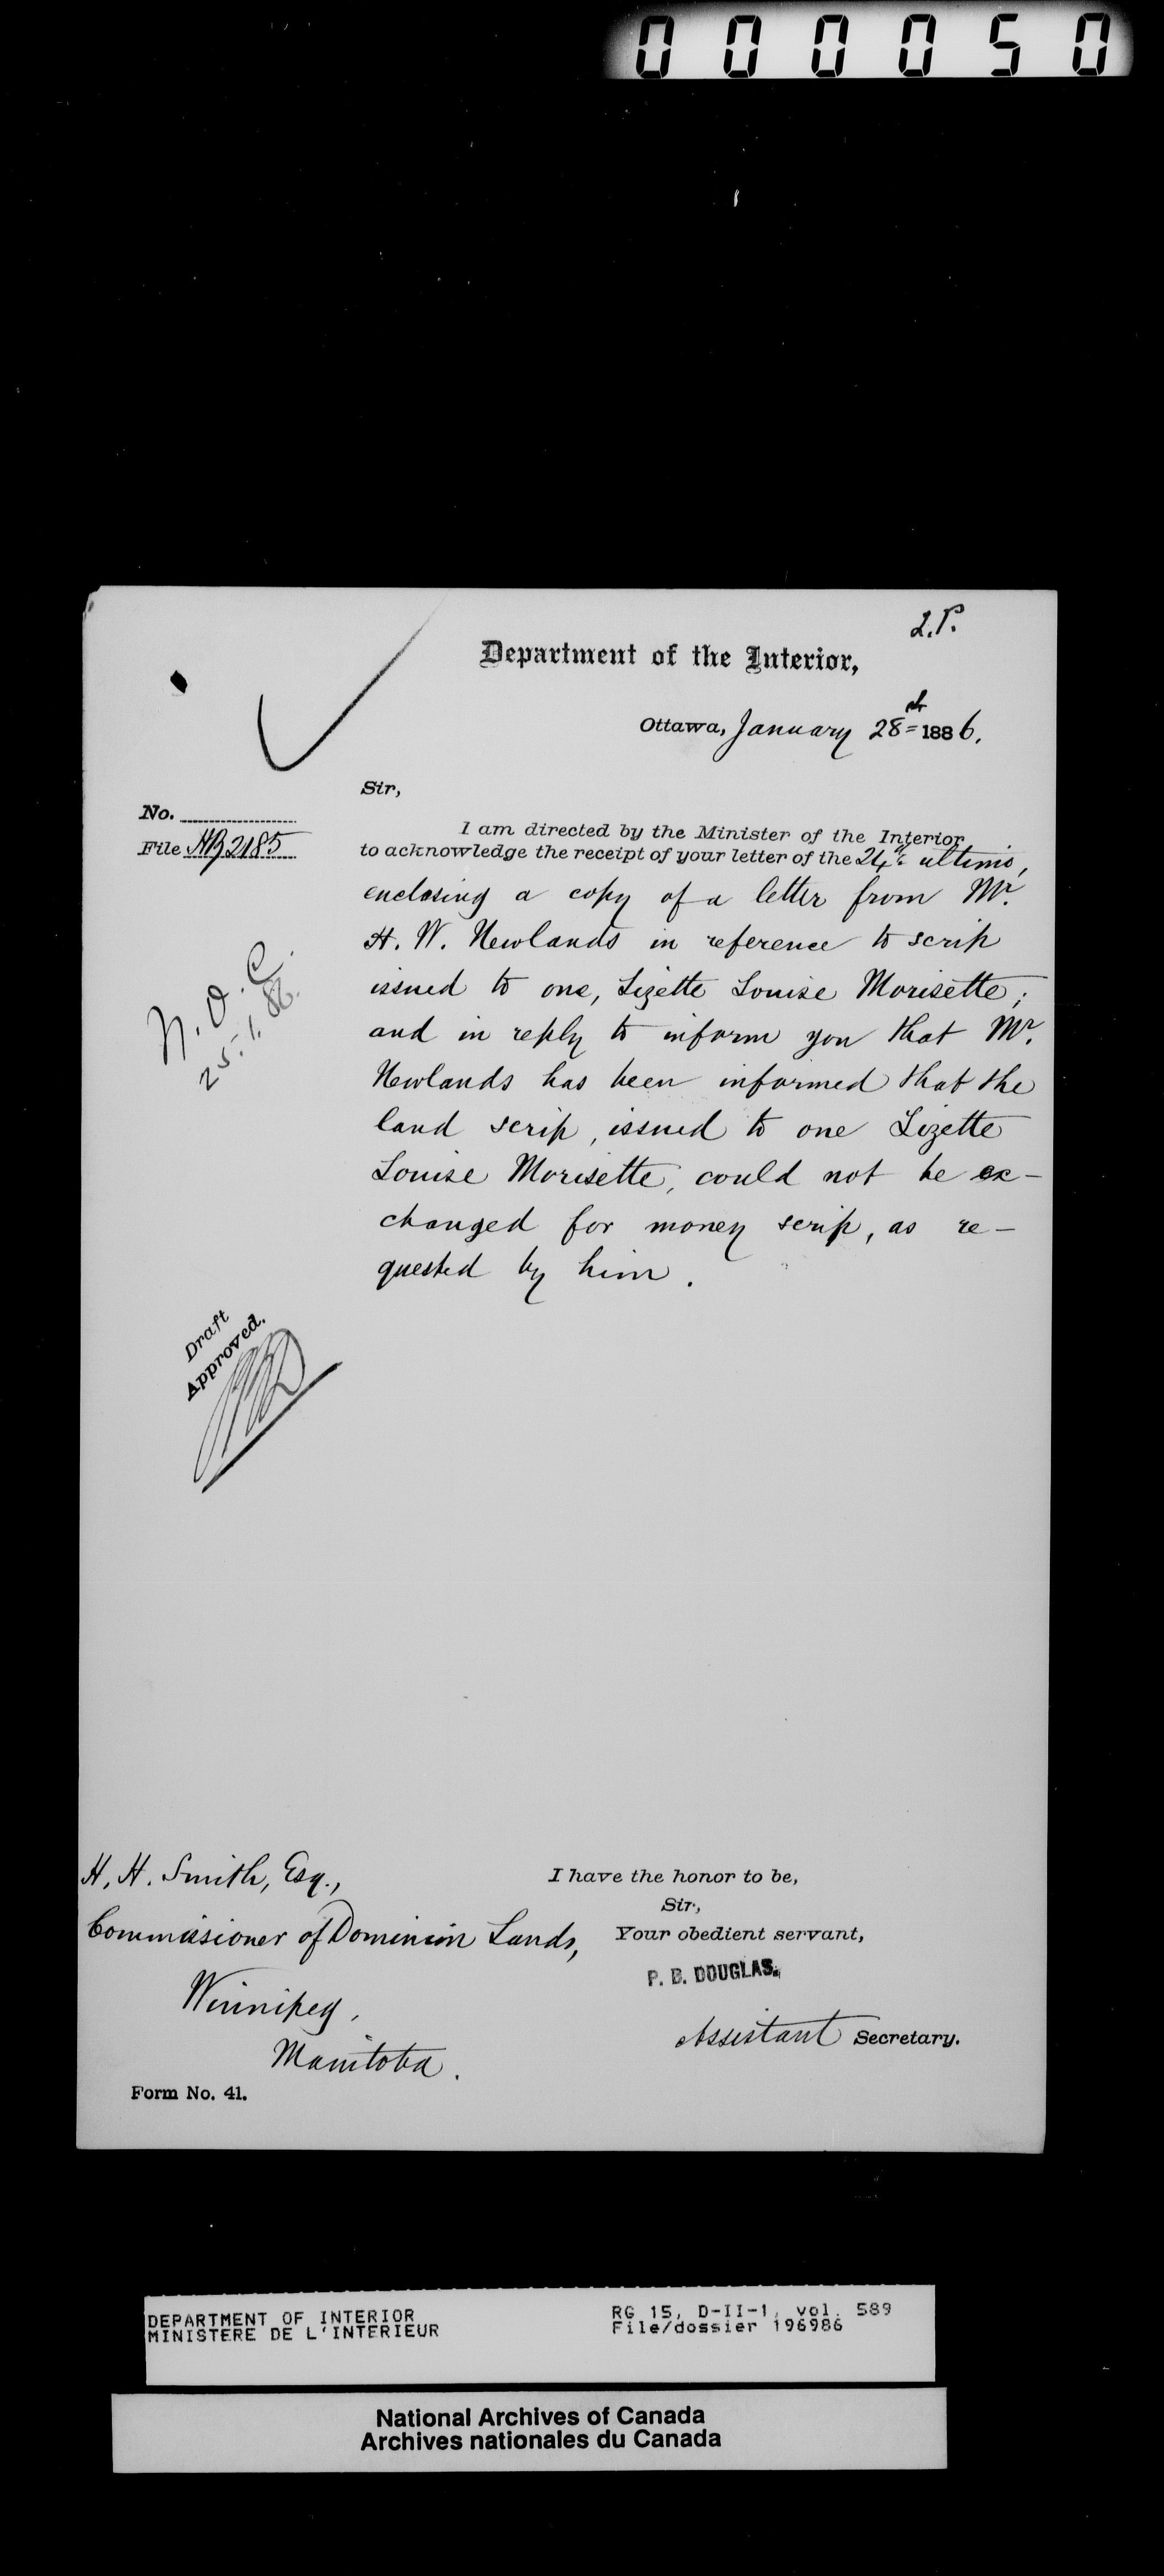 000050
L.P.
Department of the Interior,
Ottawa, January 28th 1886.
Sir,
No.
File HB 2185
I am directed by the Minister of the Interior
to acknowledge the receipt of your letter of the 24th ultimo,
enclosing a copy of a letter from Mr.
H. W. Newlands in reference to scrip
issued to one, Lizette Louise Morisette;
and in reply to inform you that Mr.
Newlands has been informed that the
land scrip, issued to one Lizette
Louise Morisette, could not be ex-
changed for money scrip, as re-
quested by him.
N.O.C.
25.1.86.
Draft
Approved.
H. H. Smith, Esq.,
Commissioner of Dominion Lands,
Winnipeg,
Manitoba.
I have the honor to be,
Sir,
Your obedient servant,
P. B. DOUGLAS.
Assistant Secretary.
Form No. 41.
DEPARTMENT OF INTERIOR
MINISTERE DE L'INTERIEUR
RG 15, D-II-1, vol. 589
File/dossier 196986
National Archives of Canada
Archives nationales du Canada